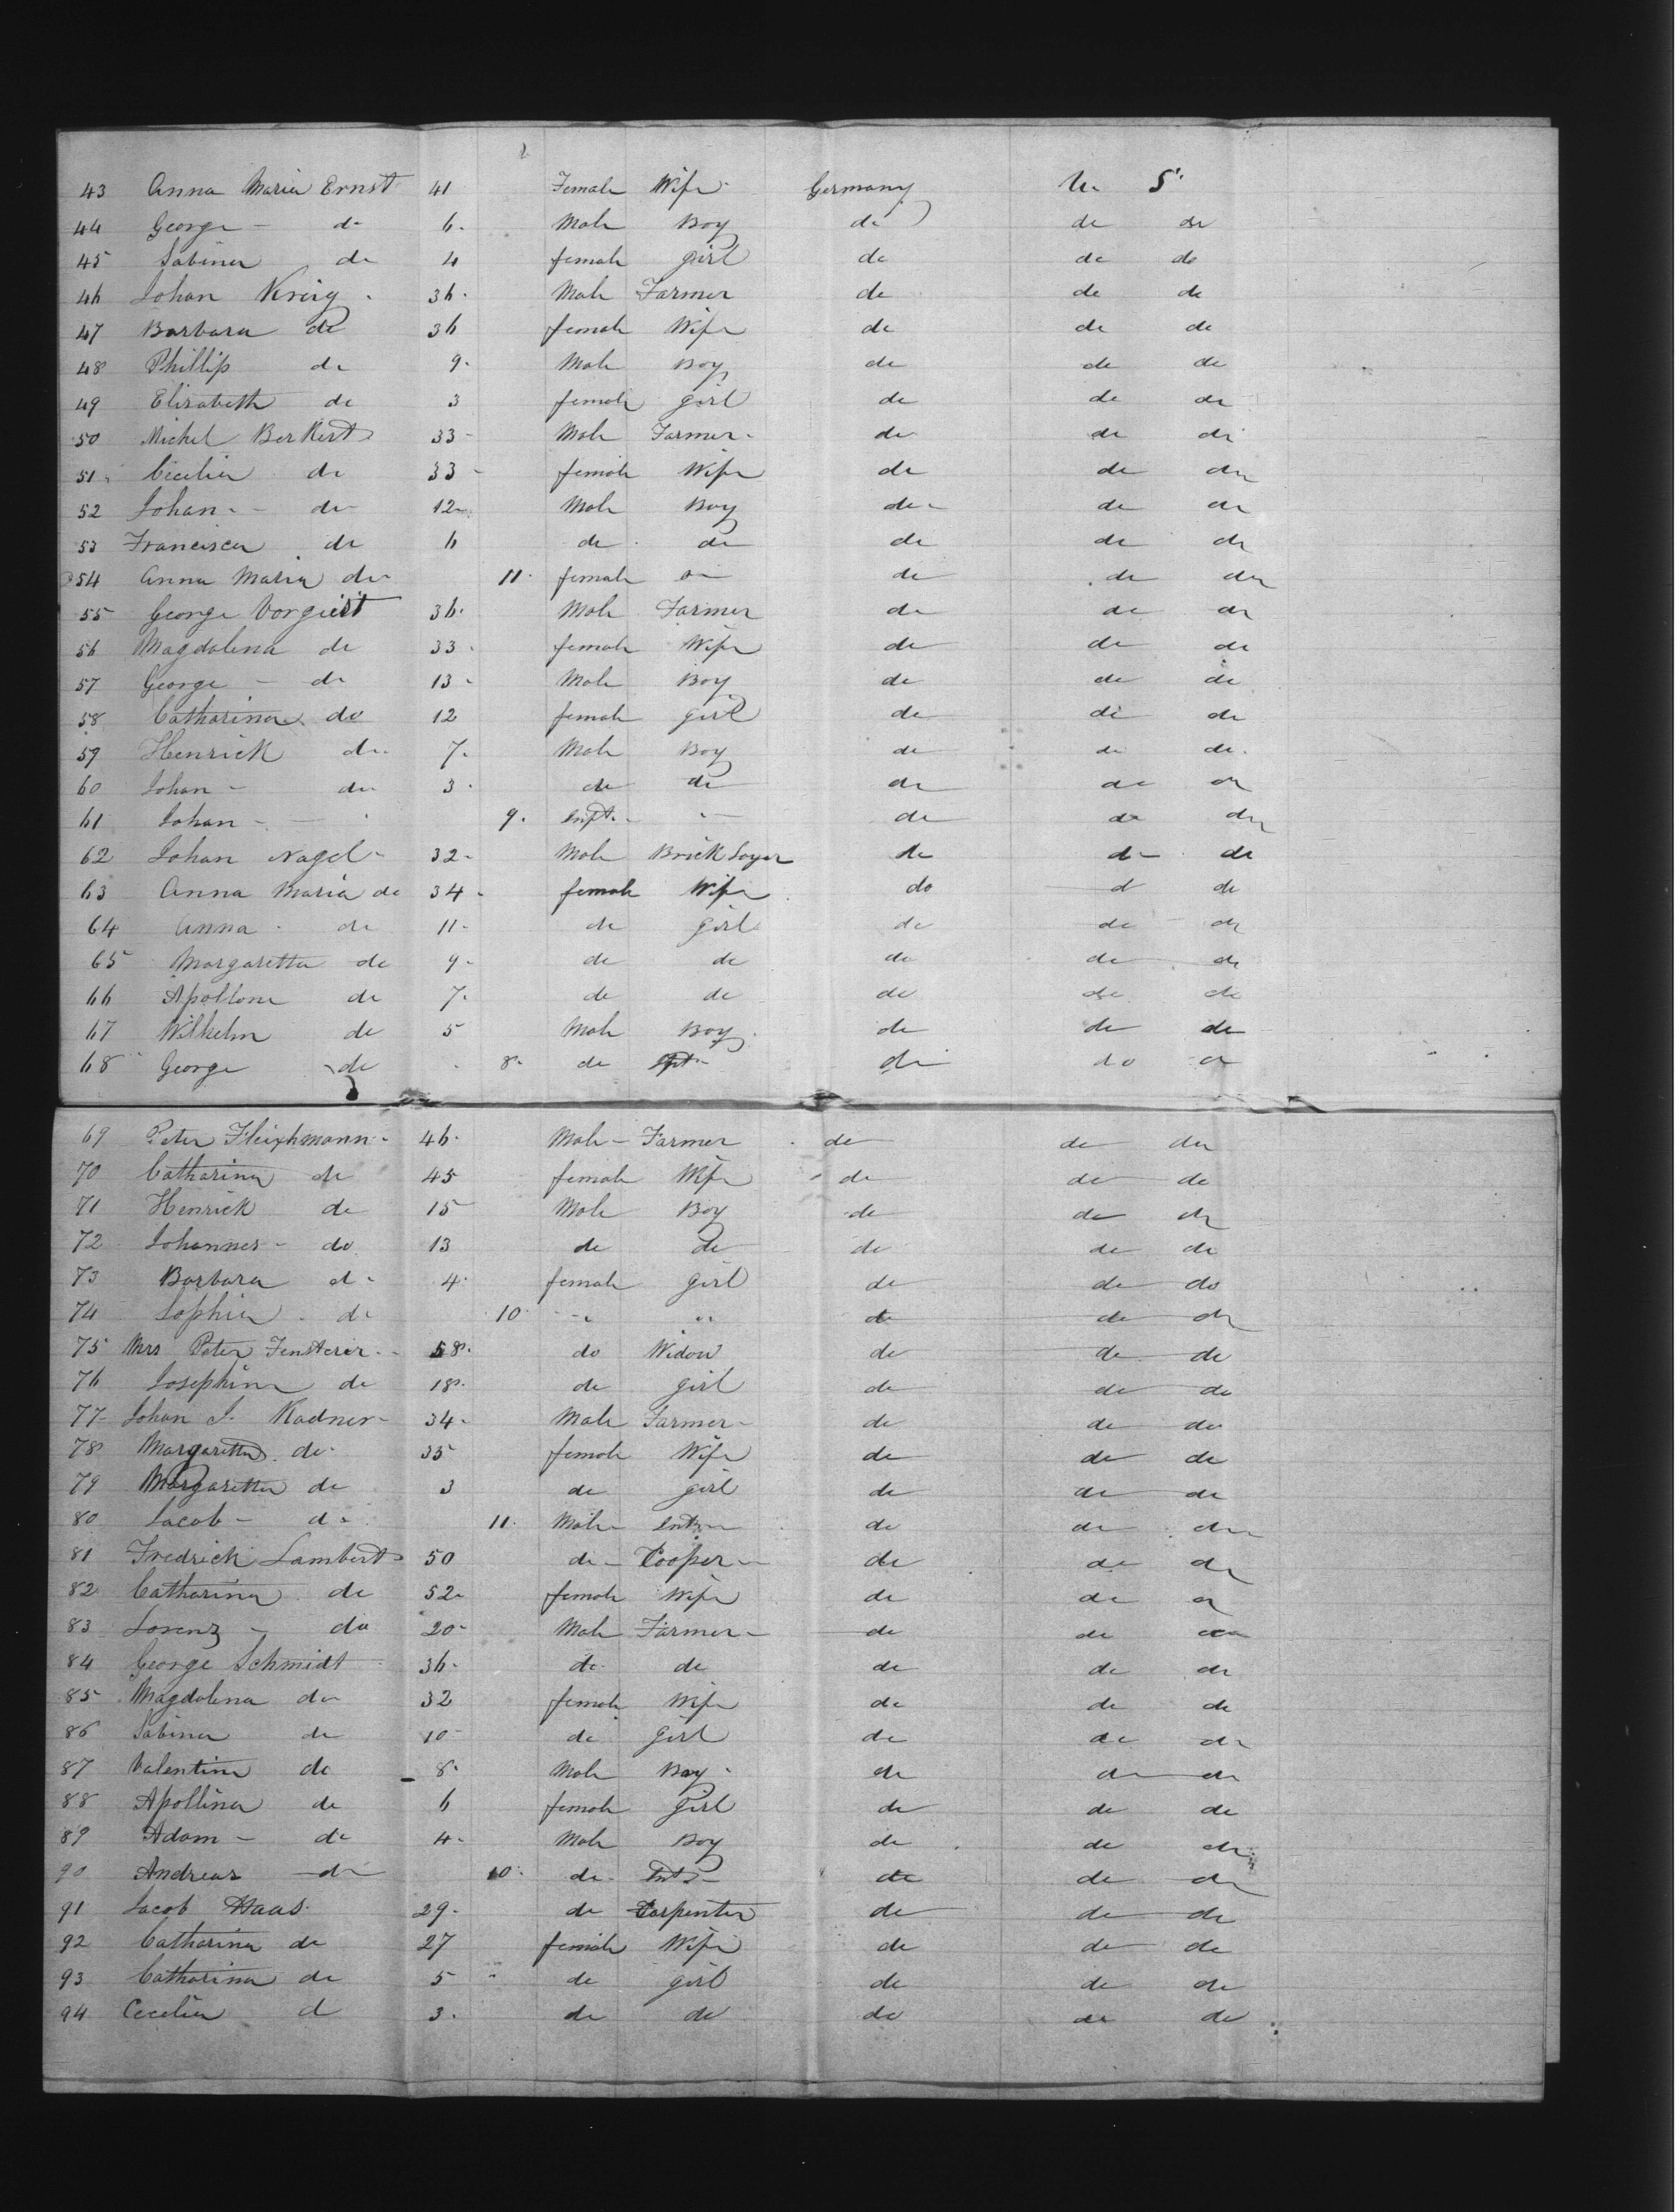 43 Anna Maria Ernst 41 Female Wife Germany U. S.
44 George - do 6. Male Boy do do do
45 Sabina do 4 female girl do do do
46 Johan Kreig 36. Male Farmer do do do
47 Barbara do 36 female Wife do do do
48 Phillip do 9. Male Boy do do do
49 Elizabeth do 3 female girl do do do
50 Michel Berkert 33 - Male Farmer - do do do
51 Cicelia do 33 - female Wife do do do
52 Johan - do 12 - Male Boy do do do
53 Francisca do 6 do do do do do
54 Anna Maria do 11. female do do do do
55 George Vorgieist 36. Male Farmer do do do
56 Magdalena do 33 - female Wife do do do
57 George - do 13 - Male Boy do do do
58 Catharina do 12 female girl do do do
59 Henrick do 7. Male Boy do do do
60 Johan - do 3. do do do do do
61 Johan - 9. Inft. - do do do
62 Johan Nagel - 32 - Male Brick Layer do do do
63 Anna Maria do 34 - female Wife do d do
64 Anna do 11 - do girl do do do
65 Margaretta do 9 - do do do do do
66 Apollone do 7. do do do do do
67 Wilhelm do 5 Male Boy do do do
68 George do 8 - do Inft - do do do
69 Peter Fleixhmann - 46. Male - Farmer do do do
70 Catharina do 45 female Wife do do do
71 Henrick do 15 Male Boy do do do
72 Johannes - do 13 do do do do do
73 Barbara do 4. female girl do do do
74 Sophia do 10 " " do do do
75 Mrs Peter Fensterer - 58. do Widow do do do
76 Josephine do 18. do girl do do do
77 Johan J. Kadner - 34 - Male Farmer - do do do
78 Margaretta do 35 female Wife do do do
79 Margaretta do 3 do girl do do do
80 Jacob - do 11. Male - Inft - do do do
81 Fredrick Lambert 50 do - Cooper - do do do
82 Catharina do 52 - female Wife do do do
83 Lorenz - do 20 - Male Farmer - do do do
84 George Schmidt 36 - do do do do do
85 Magdalena do 32 female Wife do do do
86 Sabina do 10 - do girl do do do
87 Valentine do 8 - Male Boy - do do do
88 Apollina do 6 female Girl do do do
89 Adam - do 4 - Male Boy do do do
90 Andreas do 10. do Inft - do do do
91 Jacob Haas 29 - do Carpenter do do do
92 Catharina do 27 female Wife do do do
93 Catharina do 5 do girl do do do
94 Cecelia d 3. do do do do do